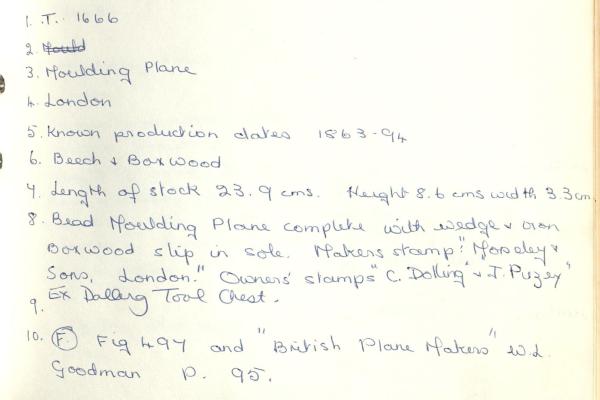 1. T. 1666
2. Mould
3. Moulding Plane
4. London
5. Known production dates 1863-94
6. Beech & Boxwood
7. Length of stock 23.9 cms. Height 8.6 cms width 3.3 cm.
8. Bead Moulding Plane complete with wedge & iron
Boxwood slip in sole. Makers stamp "Moseley &
Sons, London." Owners' stamps "C. Dolling" & "J. Puzey"
9. Ex Dolling Tool Chest.
10. (F.) Fig 497 and "British Plane Makers" W.L.
Goodman P. 95.